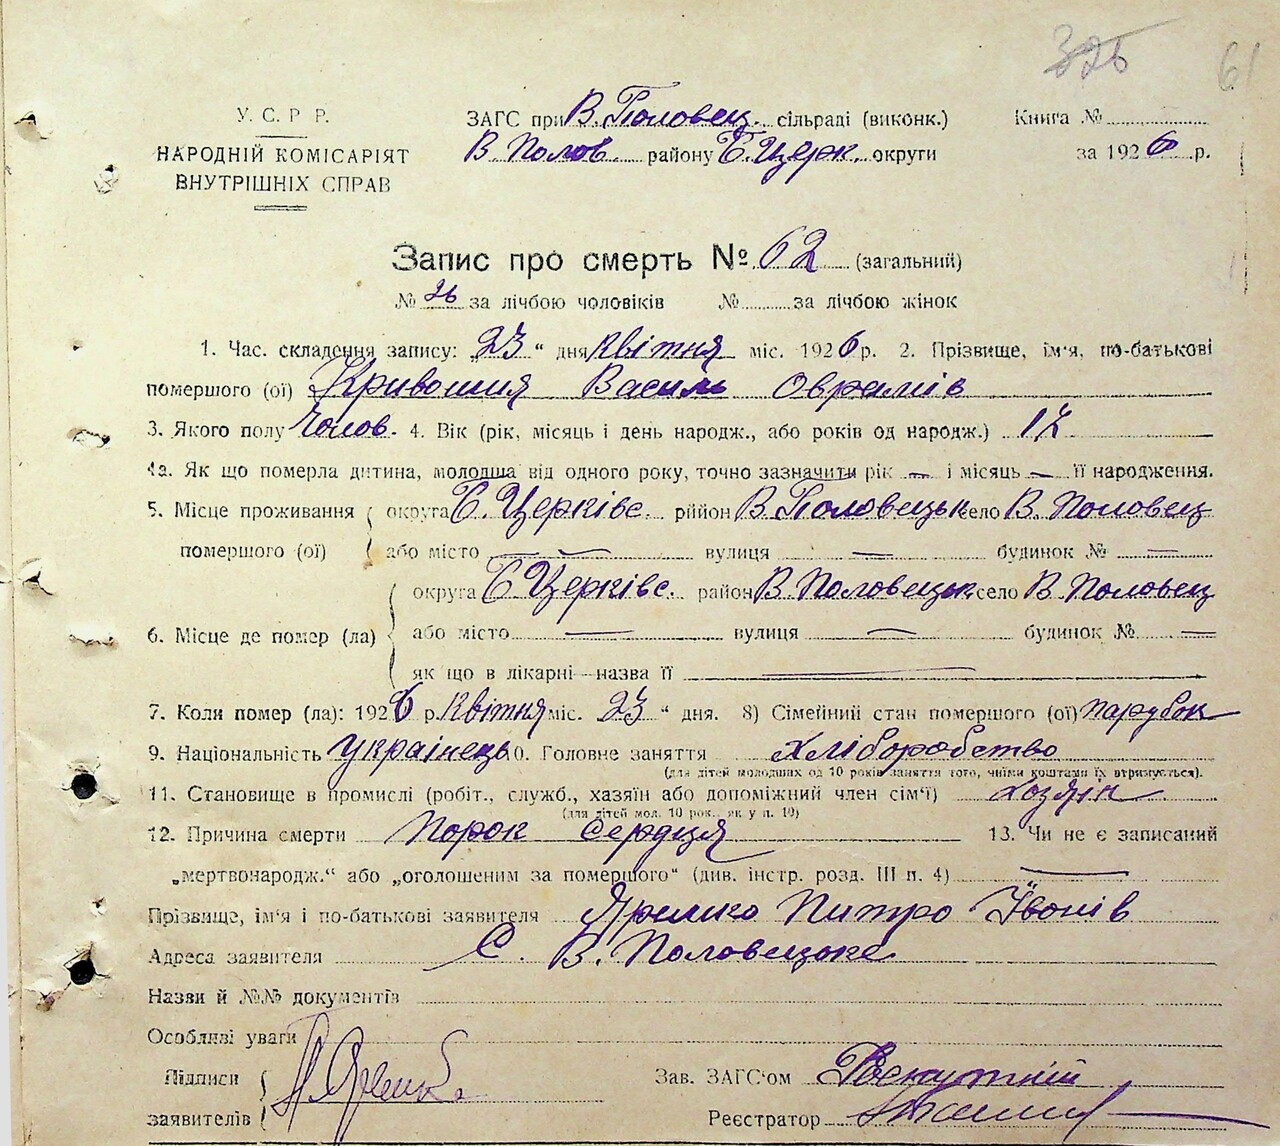 326 61
У. С. Р Р.
НАРОДНІЙ КОМІСАРІЯТ
ВНУТРІШНІХ СПРАВ
ЗАГС при В. Половец. сільраді (виконк.)
В Полов. району Б. Церк. округи
Книга №
за 1926 р.
Запис про смерть № 62 (загальний)
№ 26 за лічбою чоловіків № за лічбою жінок
1. Час складення запису: 23 " дня квітня міс. 1926 р. 2. Прізвище, ім'я, по-батькові
помершого (ої) Кривошия Василь Оврамів
3. Якого полу Чолов. 4. Вік (рік, місяць і день народж., або років од народж.) 17
4а. Як що померла дитина, молодша від одного року, точно зазначити рік — і місяць — її народження.
5. Місце проживання помершого (ої) округа Б. Церківс. район В. Половецьк село В. Половец
або місто — вулиця — будинок № —
6. Місце де помер (ла) округа Б. Церківс. район В. Половецьк село В. Половец
або місто — вулиця — будинок № —
як що в лікарні—назва її —
7. Коли помер (ла): 1926 р. Квітня міс. 23 " дня. 8) Сімейний стан помершого (ої) парубок
9. Національність українець 10. Головне заняття хліборобство
(для дітей молодших од 10 років заняття того, чиїми коштами їх втримується).
11. Становище в промислі (робіт., служб., хазяїн або допоміжний член сім'ї) хозяїн
(для дітей мол. 10 рок. як у п. 10)
12. Причина смерти Порок сердця 13. Чи не є записаний
„мертвонародж." або „оголошеним за помершого" (див. інстр. розд. III п. 4) —
Прізвище, ім'я і по-батькові заявителя Яремко Питро Івонів
Адреса заявителя С. В. Половецьке
Назви й №№ документів
Особливі уваги
Підписи заявителів
Зав. ЗАГС'ом
Реєстратор